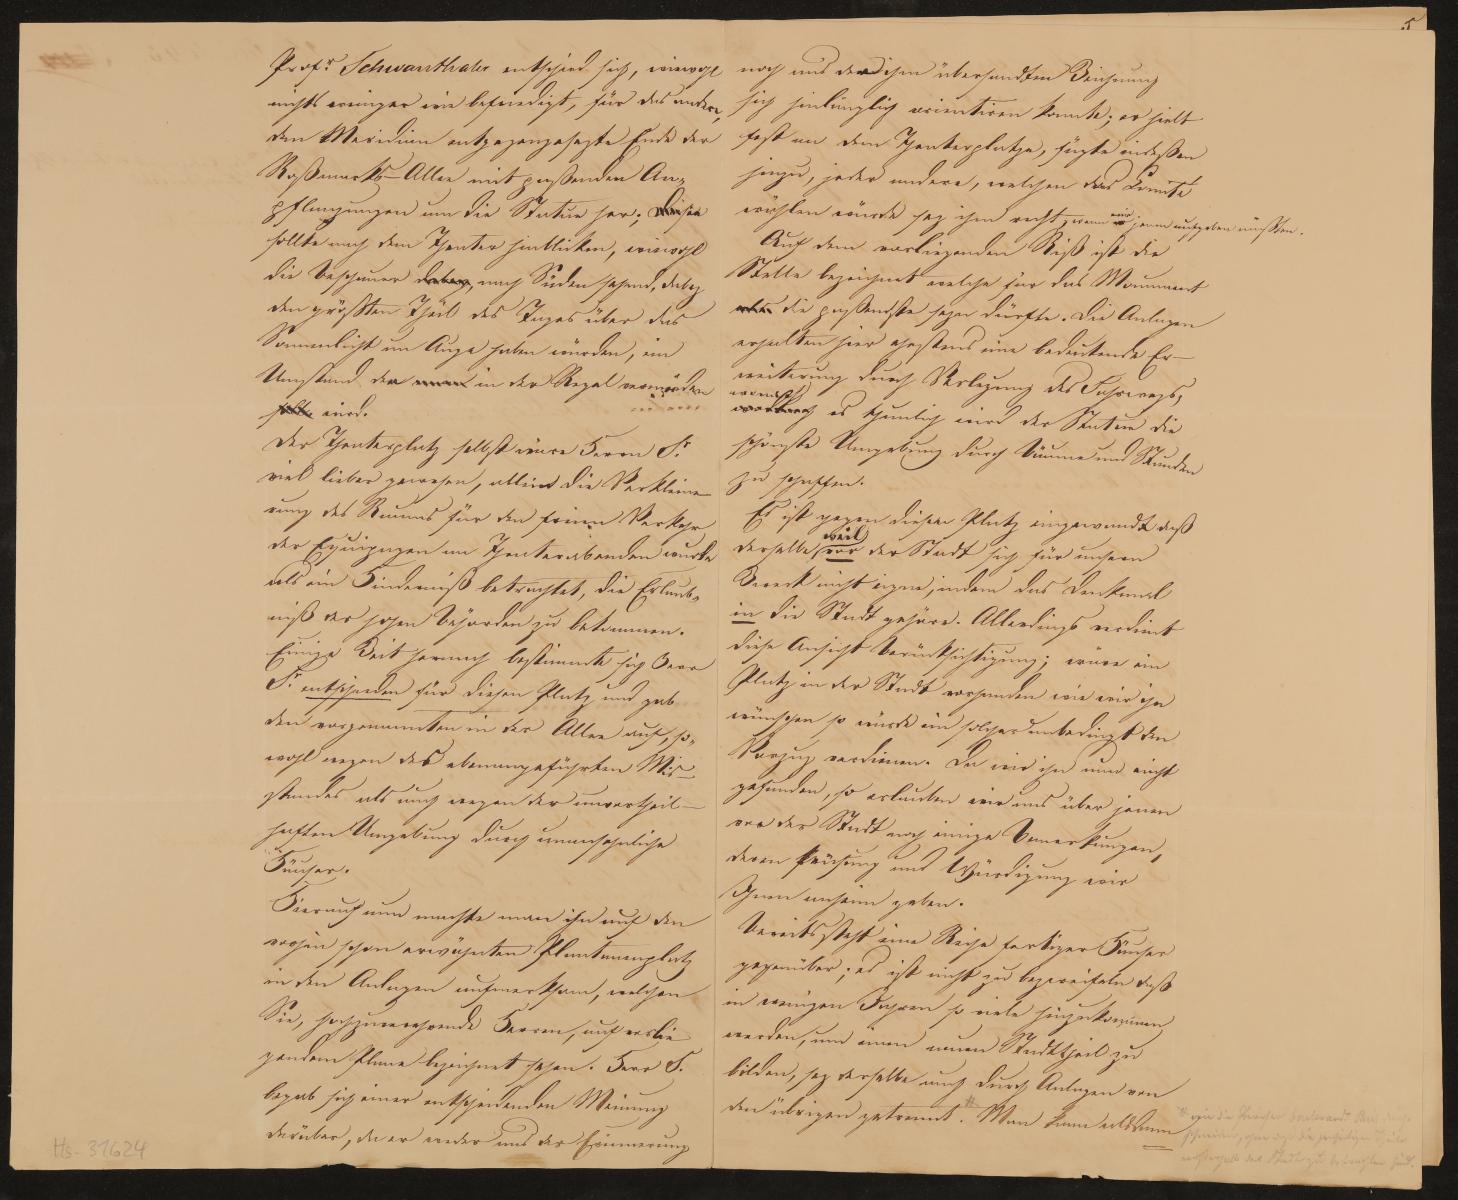 Profr Schwanthaler entschied sich, wiewohl
nichts weniger wie befriedigt, für das andere,
dem Meridian entgegengesezte Ende der
Roßmarkt-Allee mit paßenden An-
pflanzungen um die Statue her; diese
sollte nach dem Theater hinblicken, wiewohl
die Beschauer nach Süden sehend, dabey
den größten Theil des Tages über das
Sonnenlicht im Auge haben würden, ein
Umstand der in der Regel vermieden
wird.
Der Theaterplatz selbst wäre Herrn S.
viel lieber gewesen, allein die Verkleine-
rung des Raums für den freien Verkehr
der Equipagen an Theaterabenden wurde
als ein Hinderniß betrachtet, die Erlaub-
niß der hohen Behörden zu bekommen.
Einige Zeit hernach bestimmte sich Herr
S. entschieden für diesen Platz und gab
den vorgenannten in der Allee auf, so-
wohl wegen des obenangeführten Mis-
standes als auch wegen der unvortheil-
haften Umgebung durch unansehnliche
Häuser.
Hierauf nun machte man ihn auf den
vorhin schon erwähnten Plantanenplatz
in den Anlagen aufmerksam, welchen
Sie, hochzuverehrende Herren, auf vorlie-
gendem Plane bezeichnet sehen. Herr S.
begab sich einer entscheidenden Meinung
darüber, da er weder aus der Erinnerung
noch aus der ihm übersandten Zeichnung
sich hinlänglich orientiren konnte; er hielt
fest an dem Theaterplatze, fügte indeßen
hinzu, jeder andere, welchen das Comité
wählen würde sey ihm recht, wenn wir jenen aufgeben müßten.
Auf dem vorliegenden Riß ist die
Stelle bezeichnet welche für das Monument
die paßendste seyn dürfte. Die Anlagen
erhalten hier ehestens eine bedeutende Er-
weiterung durch Verlegung des Fahrwegs,
wornach es thunlich wird der Statue die
schönste Umgebung durch Bäume und Stauden
zu schaffen.
Es ist gegen diesen Platz eingewendet daß
derselbe weil vor der Stadt sich für unsern
Zweck nicht eigne, indem das Denkmal
in die Stadt gehöre. Allerdings verdient
diese Ansicht Berücksichtigung; wäre ein
Platz in der Stadt vorhanden wie wir ihn
wünschen so würde ein solcher unbedingt den
Vorzug verdienen. Da wir ihn nun nicht
gefunden, so erlauben wir uns über jenen
vor der Stadt noch einige Bemerkungen,
deren Prüfung und Würdigung wir
Ihnen anheim geben.
Bereits steht eine Reihe fertiger Häuser
gegenüber; es ist nicht zu bezweifeln daß
in wenigen Jahren so viele hinzukommen
werden, um einen neuen Stadttheil zu
bilden, sey derselbe auch durch Anlagen von
den übrigen getrennt. # Man kann alsdann
Hs- 31624
5